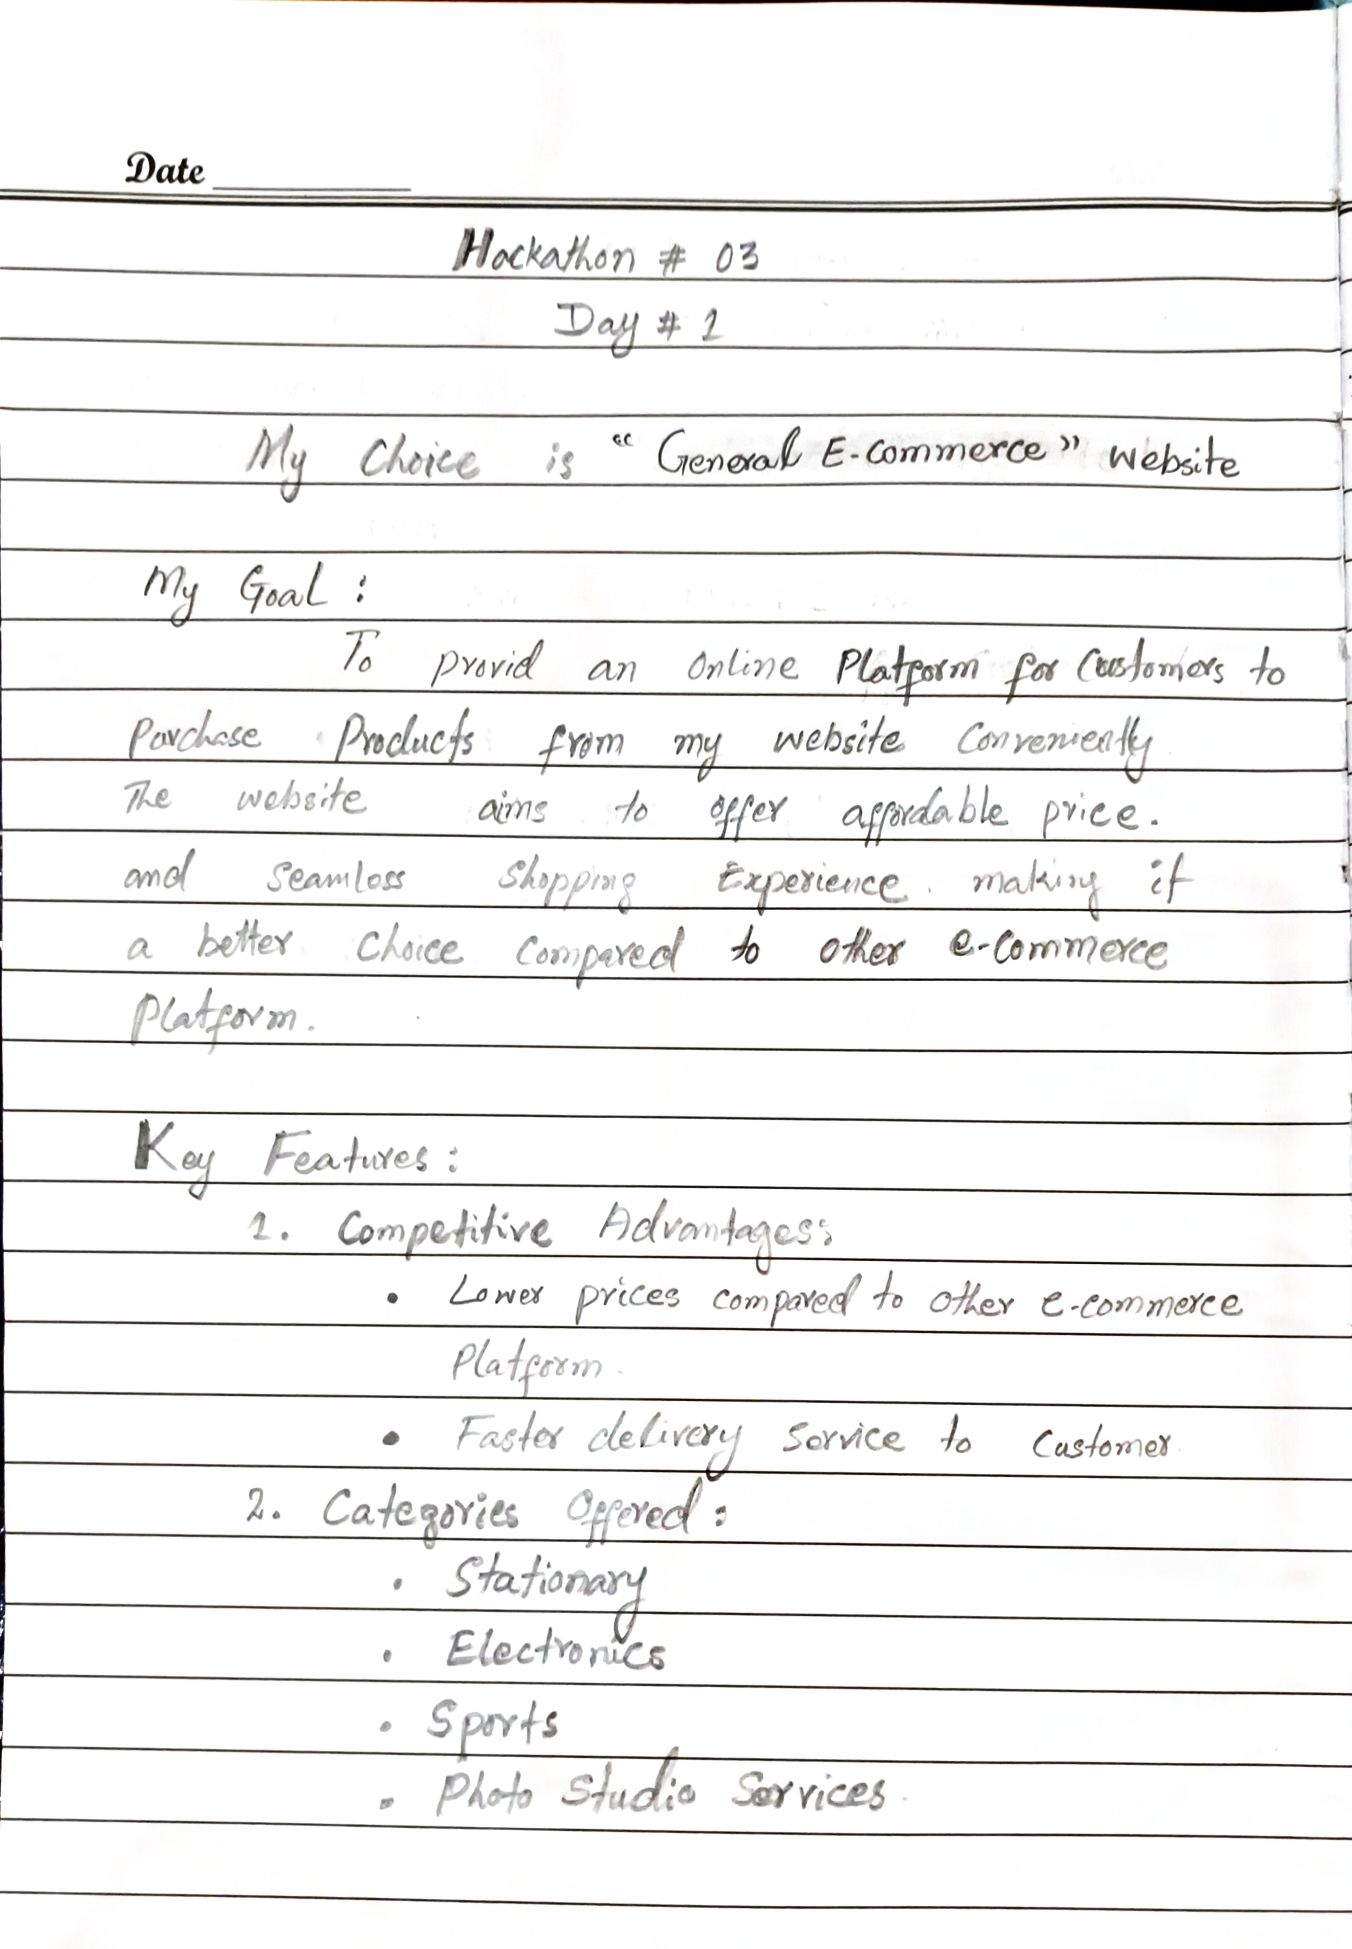 Date
Hackathon # 03
Day # 1
My Choice is "General E-commerce" website
My Goal :
To provid an online Platform for Customers to
Purchase Products from my website Conveniently
The website aims to offer affordable price.
and Seamless Shopping Experience. making it
a better Choice Compared to other e-Commerce
Platform.
Key Features :
1. Competitive Advantages:
• Lower prices compared to other e-commerce
Platform.
• Faster delivery Service to Customer
2. Categories Offered :
• Stationary
• Electronics
• Sports
• Photo Studio Services.